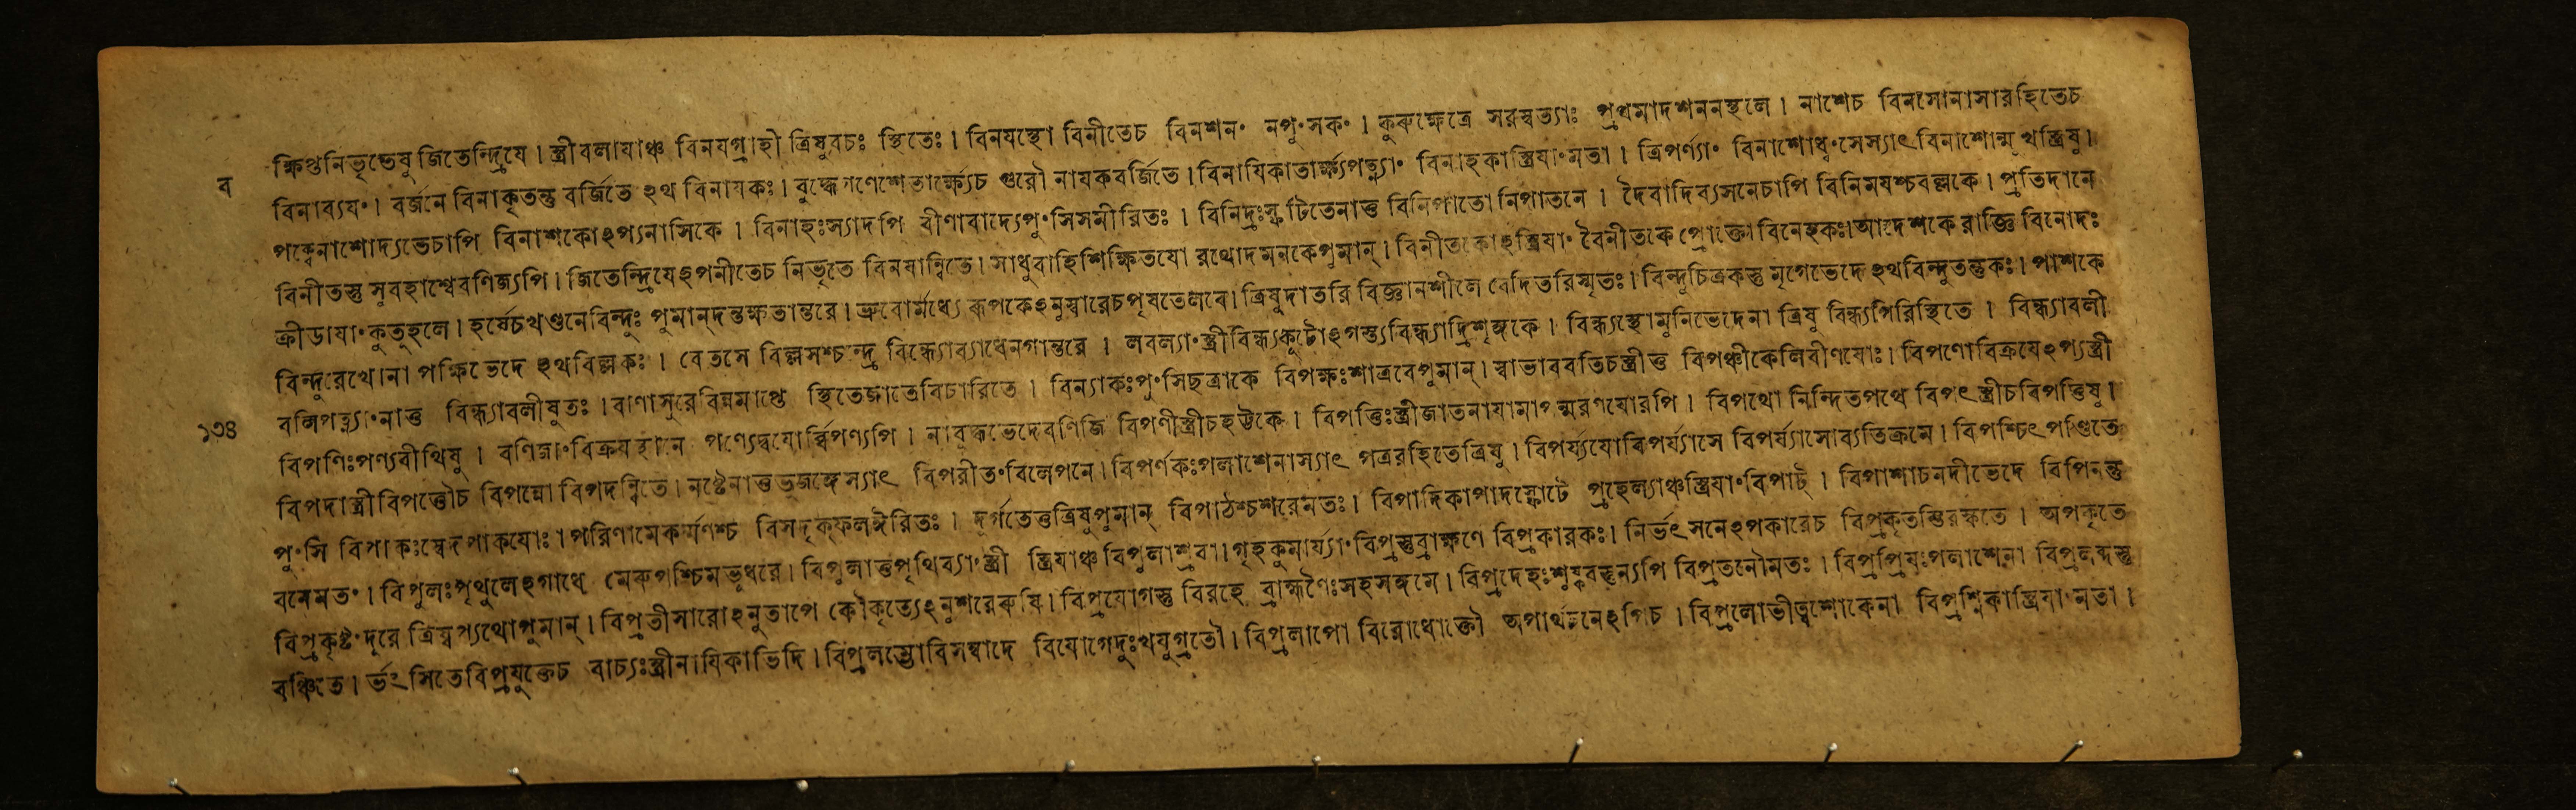 ক্ষিপ্তনিভৃতেষু জিতেন্দ্রিযে । স্ত্রীবলাযাঞ্চ বিনযগ্রাহী ত্রিষুবচঃ স্থিতেঃ । বিনযস্থো বিনীতেচ বিনশনং নপুংসকং । কুরুক্ষেত্রে সরস্বত্যাঃ প্রথমাদশননস্থলে । নাশেচ বিনসোনাসারহিতেচ
ব
বিনাব্যযং । বর্জনে বিনাকৃতন্তু বর্জিতে ঽথ বিনাযকঃ । বুদ্ধেগণেশেতার্ক্ষ্যেচ গুরৌ নাযকবর্জিতে । বিনাযিকাতার্ক্ষ্যপত্ন্যাং বিনাহকাস্ত্রিযাংমতা । ত্রিপর্ণ্যাং বিনাশোধ্বংসেস্যাৎবিনাশোন্মুখস্ত্রিষু ।
পক্কেনাশোদ্যতেচাপি বিনাশকোঽপ্যনাসিকে । বিনাহঃস্যাদপি বীণাবাদ্যেপুংসিসমীরিতঃ । বিনিদ্রঃস্ফুটিতেনাত্ত বিনিপাতো নিপাতনে । দৈবাদিব্যসনেচাপি বিনিমযশ্চবল্লকে । প্রতিদানে
বিনীতস্তু সুবহাশ্বেবণিজ্যপি । জিতেন্দ্রিযেঽপনীতেচ নিভৃতে বিনযান্বিতে । সাধুবাহিশিক্ষিতযো রথোদমনকেপুমান্ । বিনীতকোঽস্ত্রিযাং বৈনীতকে প্রোক্তো বিনেহকঃ।আদেশকে রাজ্ঞি বিনোদঃ
ক্রীডাযাংকুতুহলে । হর্ষেচখণ্ডনেবিন্দুঃ পুমান্দন্তক্ষতান্তরে । ভ্রুবোর্মধ্যে রূপকেঽনুস্বারেচপৃষতেলবে। ত্রিষুদাতরি বিজ্ঞানশীলে বেদিতরিস্মৃতঃ । বিন্দুচিত্রকস্তু মৃগেভেদে ঽথবিন্দুতন্তুকঃ । পাশকে
বিন্দুরেখোনা পক্ষিভেদে ঽথবিল্লকঃ । বেতসে বিল্লসশ্চন্দ্র বিন্ধ্যোব্যাধেনগান্তরে । লবল্যাংস্ত্রীবিন্ধ্যকূটোঽগস্ত্যবিন্ধ্যাদ্রিশৃঙ্গকে । বিন্ধ্যস্থোমুনিভেদেনা ত্রিষু বিন্ধ্যগিরিস্থিতে । বিন্ধ্যাবলী
১৩৪
বলিপত্ন্যাংনাত্ত বিন্ধ্যাবলীষুতঃ । বাণাসুরেবিন্নমাপ্তে স্থিতেজ্ঞাতেবিচারিতে । বিন্যাকঃপুংসিছত্রাকে বিপক্ষঃশাত্রবেপুমান্ । স্বাভাববতিচস্ত্রীত্ত বিপঞ্চীকেলিবীণযোঃ । বিপণোবিক্রযেঽপ্যস্ত্রী
বিপণিঃপণ্যবীথিষু । বণিজাংবিক্রযস্থানে পণ্যেদ্বযোর্ব্বিপণ্যপি । নাবৃক্ষভেদেবণিজি বিপণীস্ত্রীচহট্টকে । বিপত্তিঃস্ত্রীজাতনাযামাপন্মরণযোরপি । বিপথো নিন্দিতপথে বিপৎস্ত্রীচবিপত্তিষু ।
বিপদাস্ত্রীবিপত্তৌচ বিপন্নো বিপদন্বিতে । নষ্টেনাত্তভুজঙ্গেস্যাৎ বিপরীতংবিলেপনে । বিপর্ণকঃপলাশেনাস্যাৎ পত্ররহিতেত্রিষু । বিপর্য্যযোবিপর্য্যাসে বিপর্য্যাসোব্যতিক্রমে । বিপশ্চিৎপণ্ডিতে
পুংসি বিপাকঃস্বেদপাকযোঃ । পরিণামেকর্ম্মণশ্চ বিসদৃক্ফলঈরিতঃ । দূর্গতেত্তত্রিষুপুমান্ বিপাঠশ্চশরেমতঃ । বিপাদিকাপাদস্ফোটে প্রহেল্যাঞ্চস্ত্রিযাংবিপাট্ । বিপাশাচনদীভেদে বিপিনন্তু
বনেমতং । বিপুলঃপৃথুলেঽগাধে মেরুপশ্চিমভূধরে । বিপুলাত্তপৃথিব্যাংস্ত্রী স্ত্রিযাঞ্চ বিপুলাশ্রবা । গৃহকুমার্য্যাংবিপ্রস্তুব্রাহ্মণে বিপ্রকারকঃ । নির্ভৎসনেঽপকারেচ বিপ্রকৃতস্তিরস্কতে । অপকৃতে
বিপ্রকৃষ্টংদূরে ত্রিষ্বপ্যথোপুমান্ । বিপ্রতীসারোঽনুতাপে কৌকৃত্যেঽনুশরেরুষি । বিপ্রযোগস্তু বিরহে ব্রাহ্মণৈঃসহসঙ্গমে । বিপ্রদেহঃশুষ্কবত্তন্যপি বিপ্রতনৌমতঃ । বিপ্রপ্রিযঃপলাশেনা বিপ্রলব্ধস্তু
বঞ্চিতে । র্ভৎসিতেবিপ্রযুক্তেচ বাচ্যঃস্ত্রীনাযিকাভিদি । বিপ্রলম্ভোবিসম্বাদে বিযোগেদুঃখযুগ্রতৌ । বিপ্রলাপো বিরোধোক্তৌ অপার্থ ঽপিচ । বিপ্রলোভীত্বশোকেনা বিপ্রশ্নিকাস্ত্রিযাংমতা ।